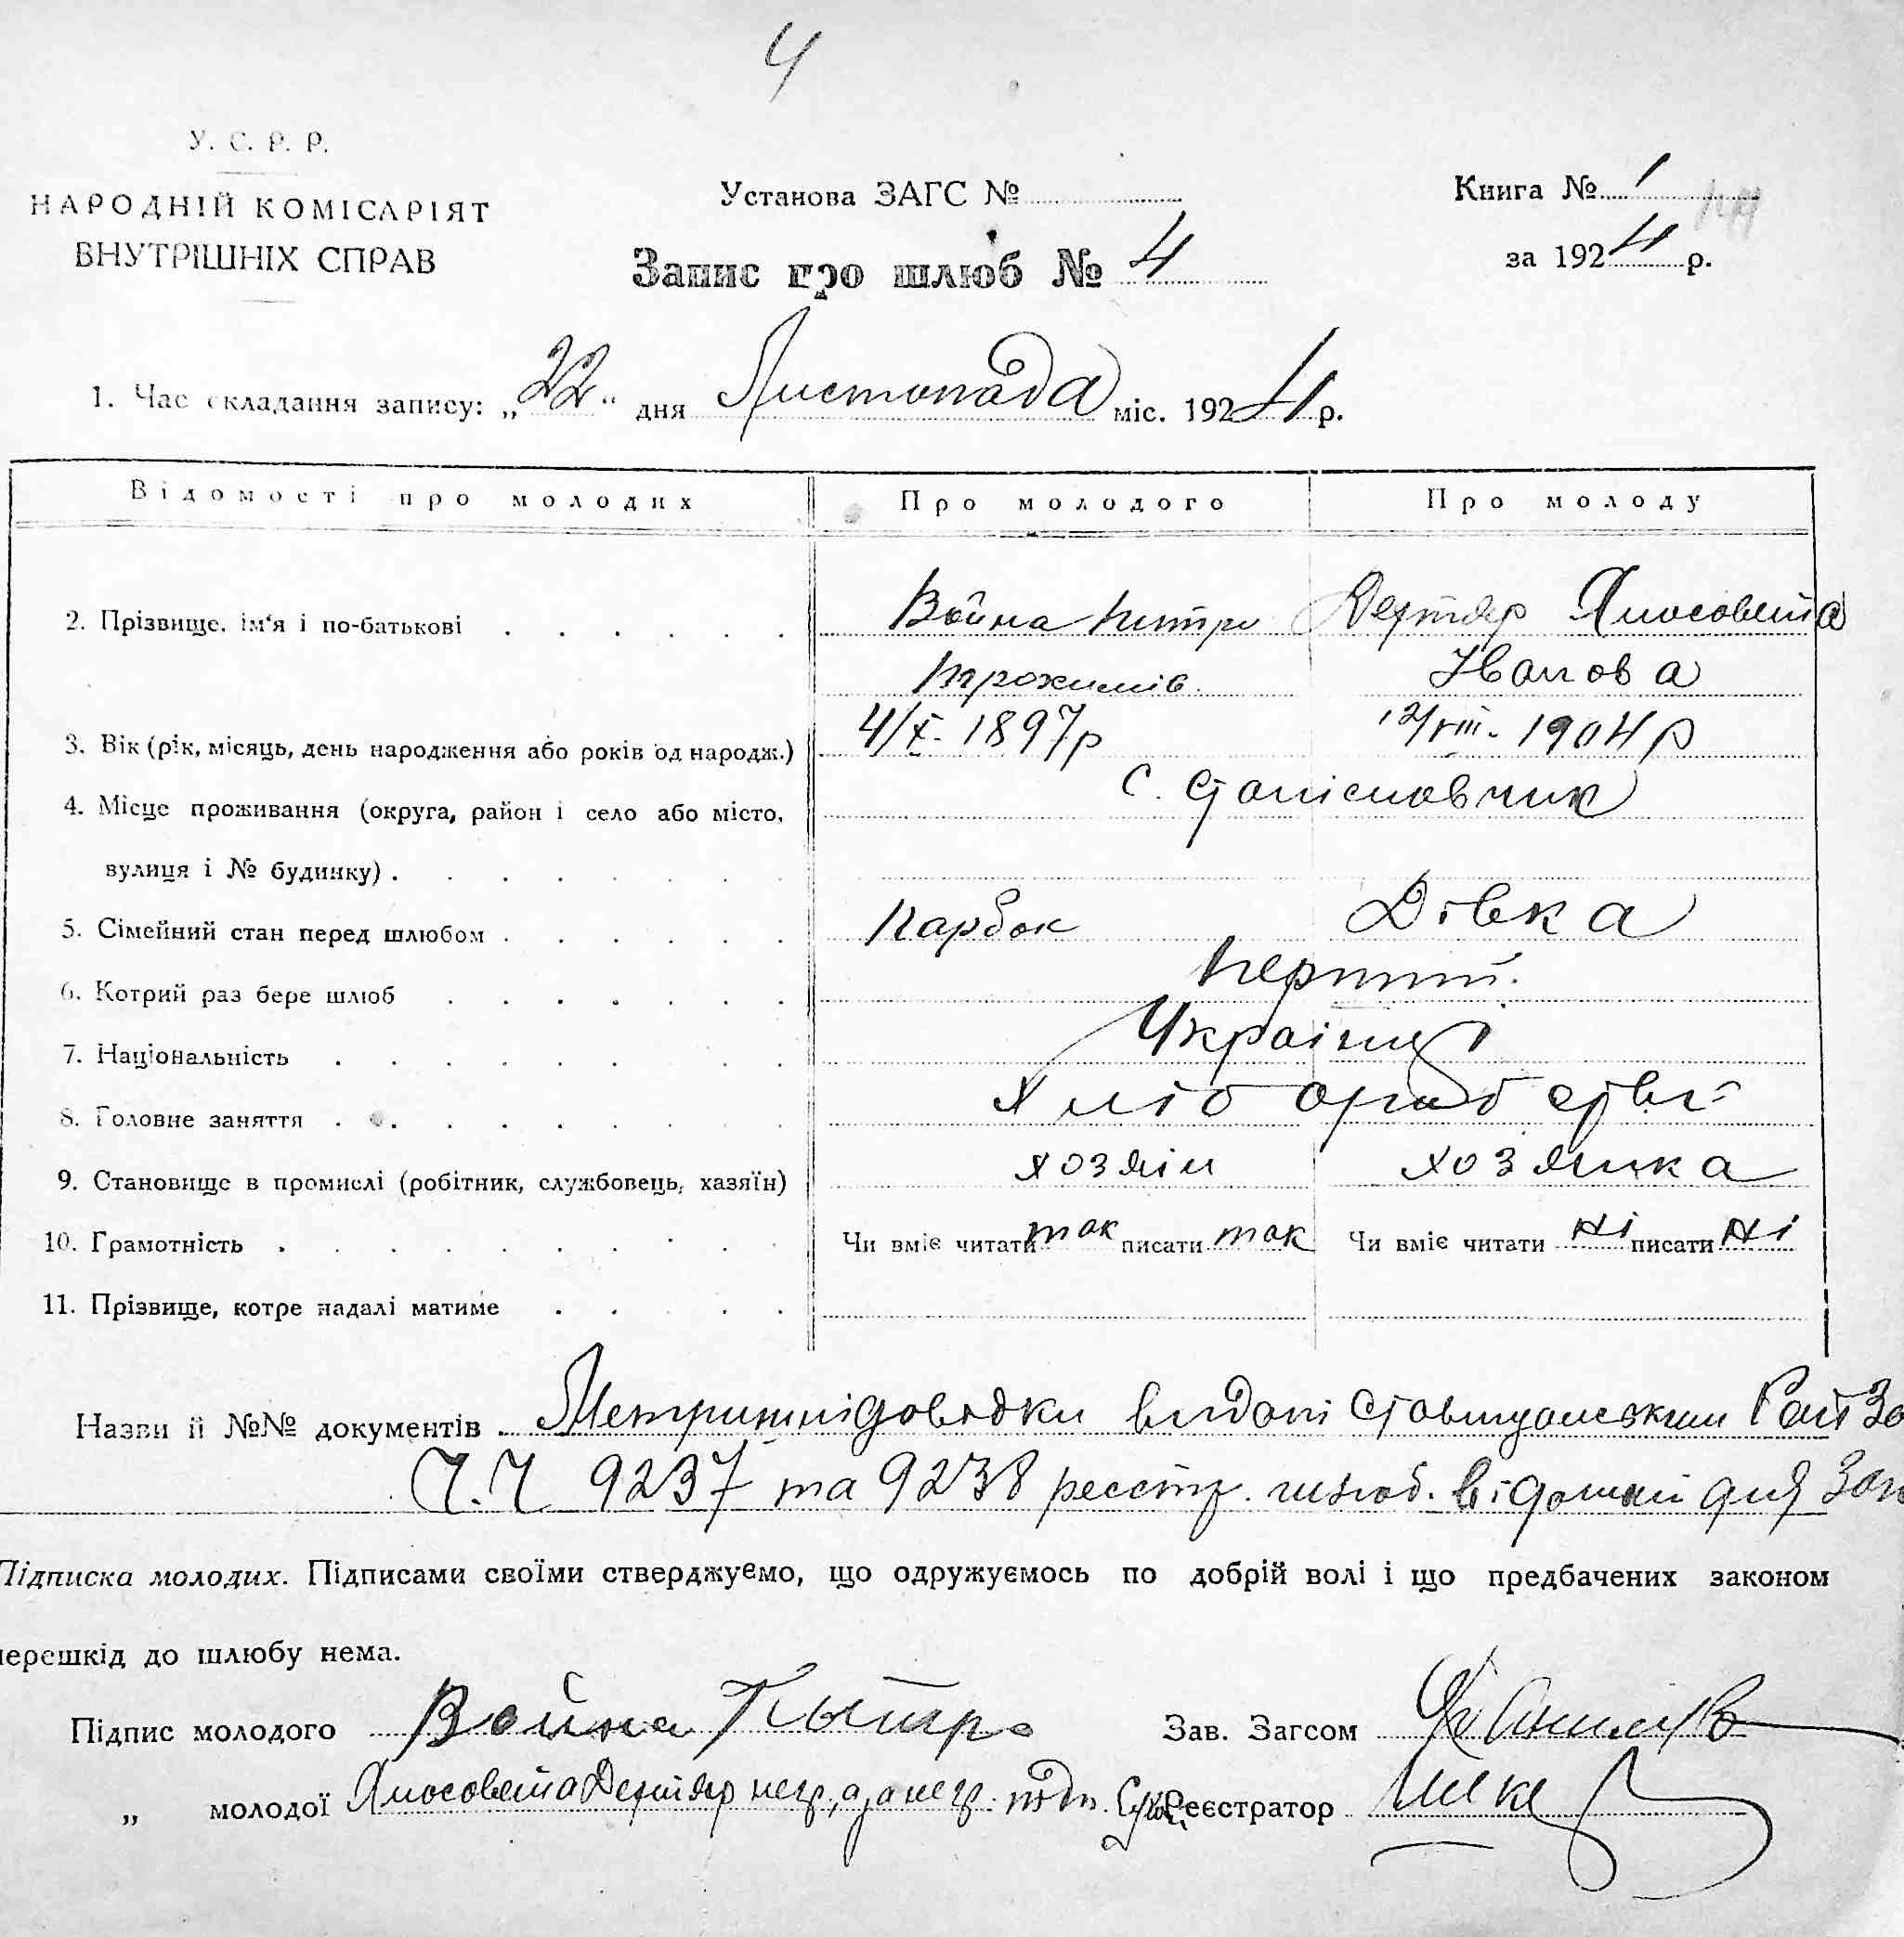 4
У. С. Р. Р.
НАРОДНІЙ КОМІСАРІЯТ
ВНУТРІШНІХ СПРАВ
Установа ЗАГС №
Книга № 1
Запис про шлюб № 4
за 1924 р.
1. Час складання запису: „22“ дня Листопада міс. 1924 р.
Відомості про молодих Про молодого Про молоду
2. Прізвище, ім'я і по-батькові Война Петро Дехтяр Ялосовета
Трохимів Іванова
3. Вік (рік, місяць, день народження або років од народж.) 4/X. 1897р 12/VIII. 1904р
4. Місце проживання (округа, район і село або місто, С. Станіславчик
вулиця і № будинку)
5. Сімейний стан перед шлюбом Парубок Дівка
6. Котрий раз бере шлюб Перший.
7. Національність Українці
8. Головне заняття Хліборобство
9. Становище в промислі (робітник, службовець, хазяїн) хозяін хозяйка
10. Грамотність Чи вміє читати так писати так Чи вміє читати ні писати ні
11. Прізвище, котре надалі матиме
Назви й №№ документів Метричні довідки видані Ставищанским
Ч.Ч 9237 та 9238 реєстр. шлюб. для
Підписка молодих. Підписами своїми стверджуємо, що одружуємось по добрій волі і що предбачених законом
перешкід до шлюбу нема.
Підпис молодого Война Пытро Зав. Загсом
„ молодої Ялосовета Дехтяр негр, а за негр. Реєстратор